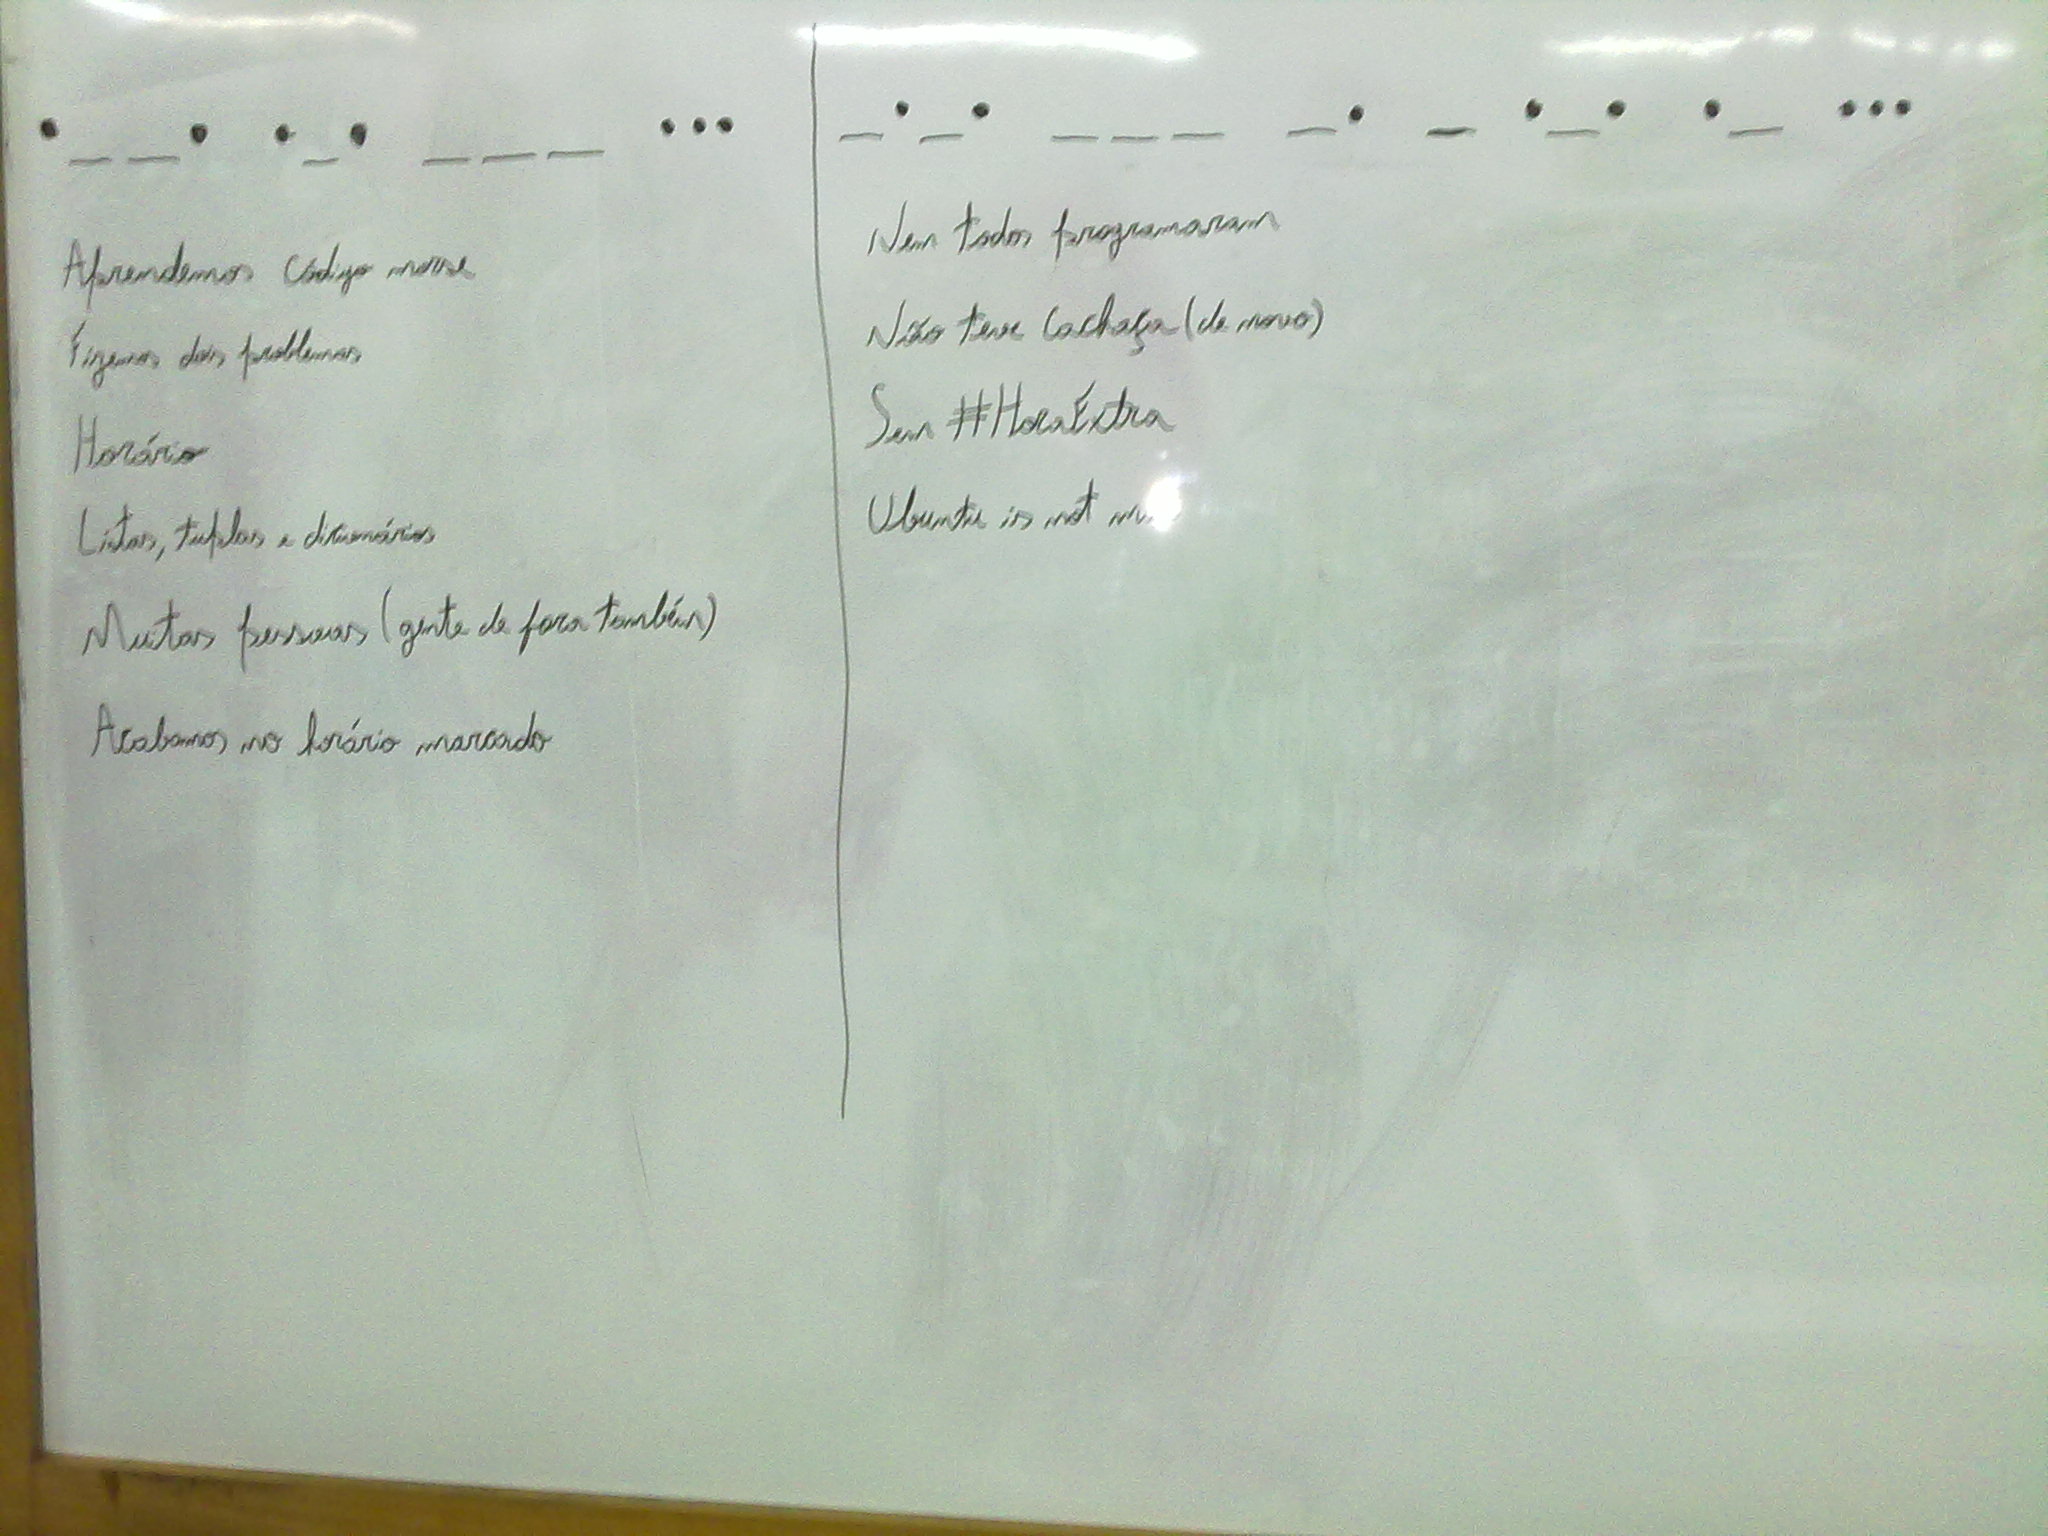 .__. ._. ___ ...
Aprendemos código morse
Fizemos dois problemas
Horário
Listas, tuplas e dicionários
Muitas pessoas (gente de fora também)
Acabamos no horário marcado
_._. ___ _. _ ._. ._ ...
Nem todos programaram
Não teve cachaça (de novo)
Sem #HoraExtra
Ubuntu is not